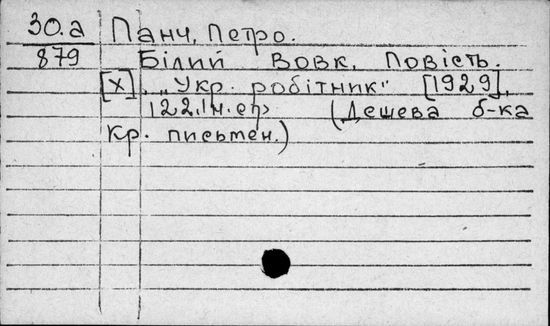 30.а Панч, Петро.
879 Білий вовк. Повість.
[Х], „Укр. робітник" [1929],
122,1н.ст. (Дешева б-ка
кр. письмен.)